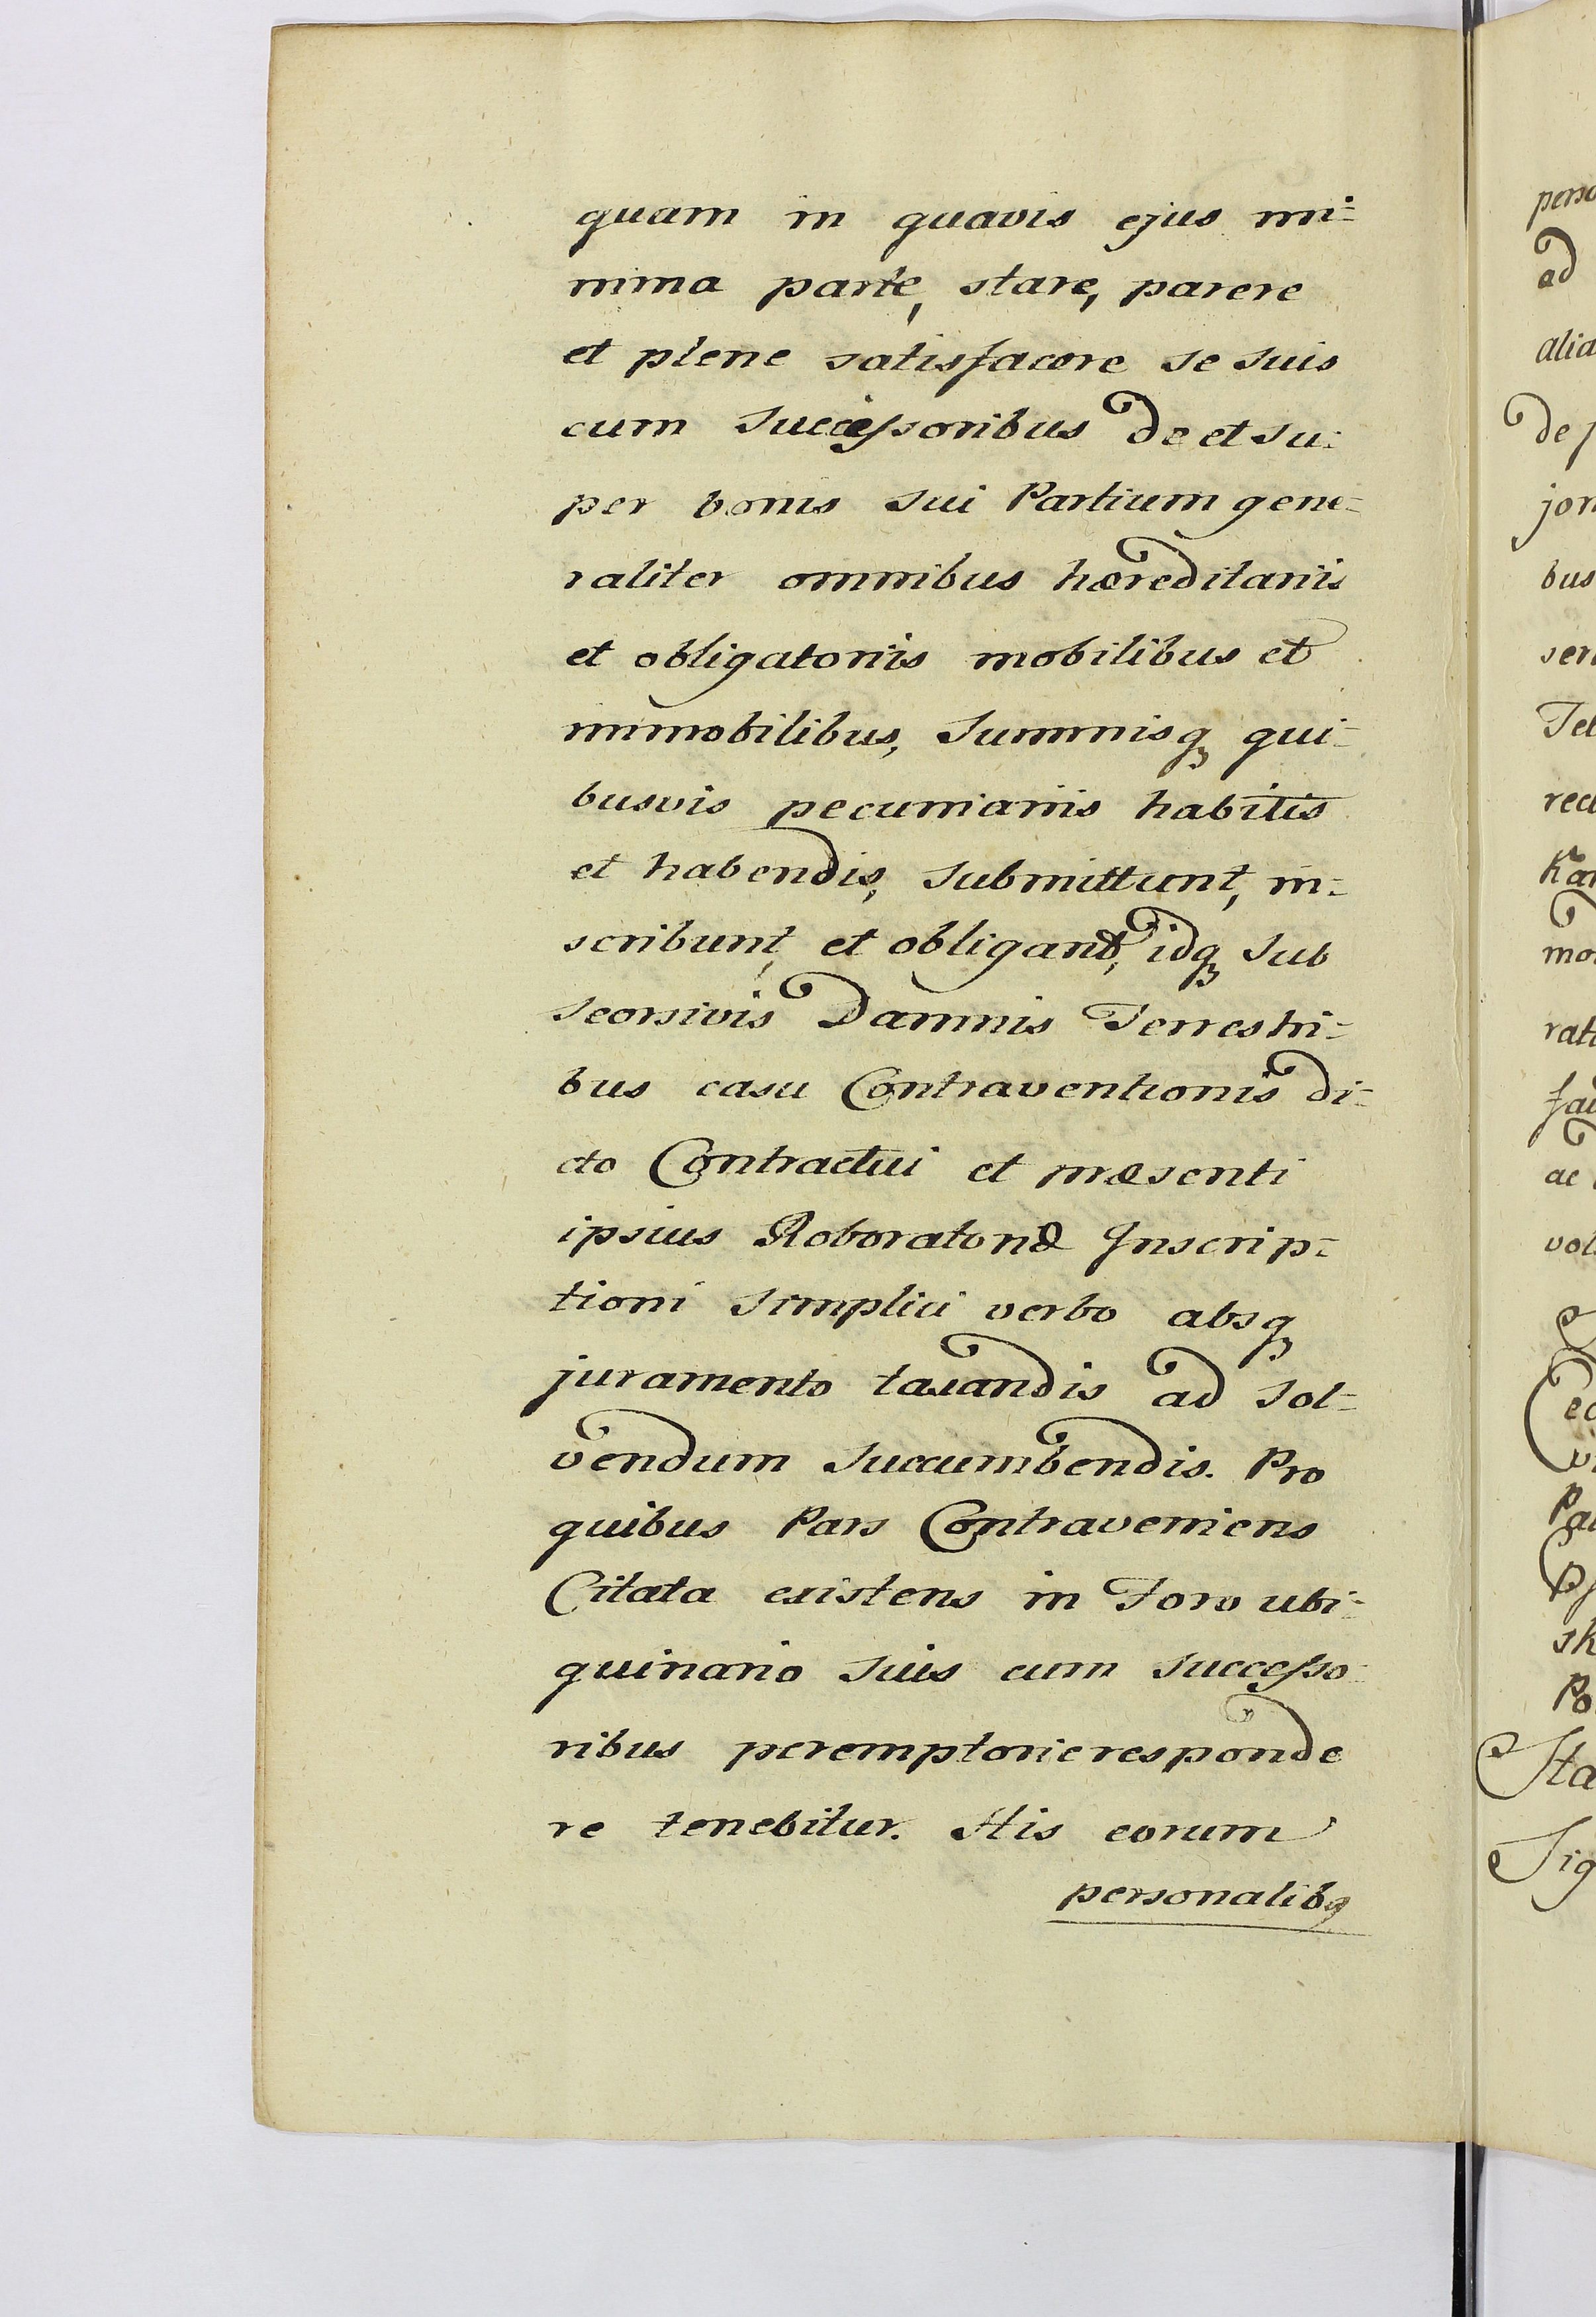 quam in quavis ejus mi=
nima parte, stare, parere
et plene satisfacere se suis
cum Successoribus de et su=
per bonis sui Partium gene=
raliter omnibus hæreditariis
et obligatoriis mobilibus et
immobilibus, Summisq₃ qui=
busvis pecuniariis habitis
et habendis, submittunt, in=
scribunt, et obligant, idq₃ sub
seorsivis Damnis Terrestri=
bus casu Contraventionis di=
cto Contractui et præsenti
ipsius Roboratoriæ Inscrip=
tioni simplici verbo absq₃
juramento taxandis ad sol=
vendum succumbendis. Pro
quibus Pars Contraveniens
Citata existens in Foro ubi=
quinario suis cum successo=
ribus peremptorie responde
re tenebitur. His eorum
personalibꝯ
perso
ad
alia
de p
jor
bus
ser
Tel
rec
Kar
mo
rati
fa
ac
vol
sk
Po
Sta
Sig